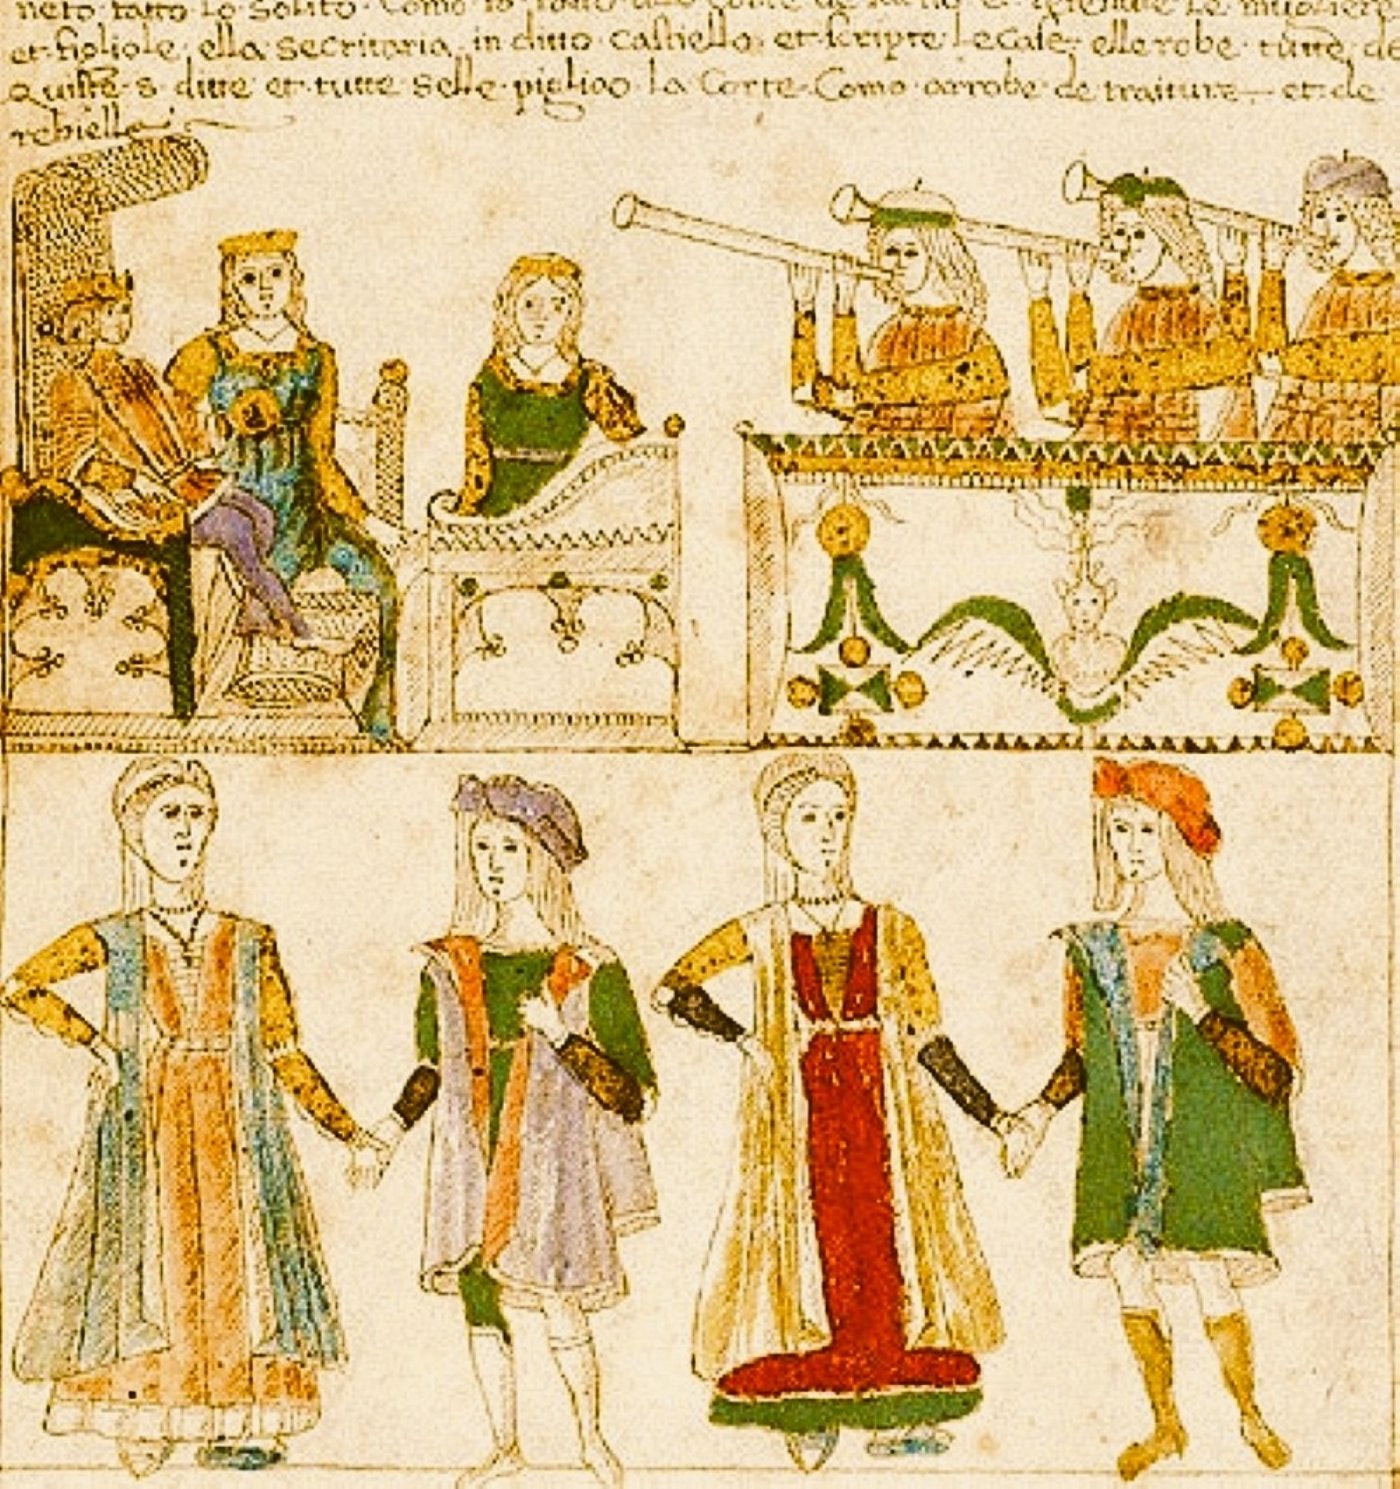 neto tutto lo solito. Como
et figliole, ella secritaria, in ditto castiello, et scripte le case, elle robe tutte, de
quiste s. ditte et tutte selle pigliao la Corte. Como arrobe de traiture et de
rebielle